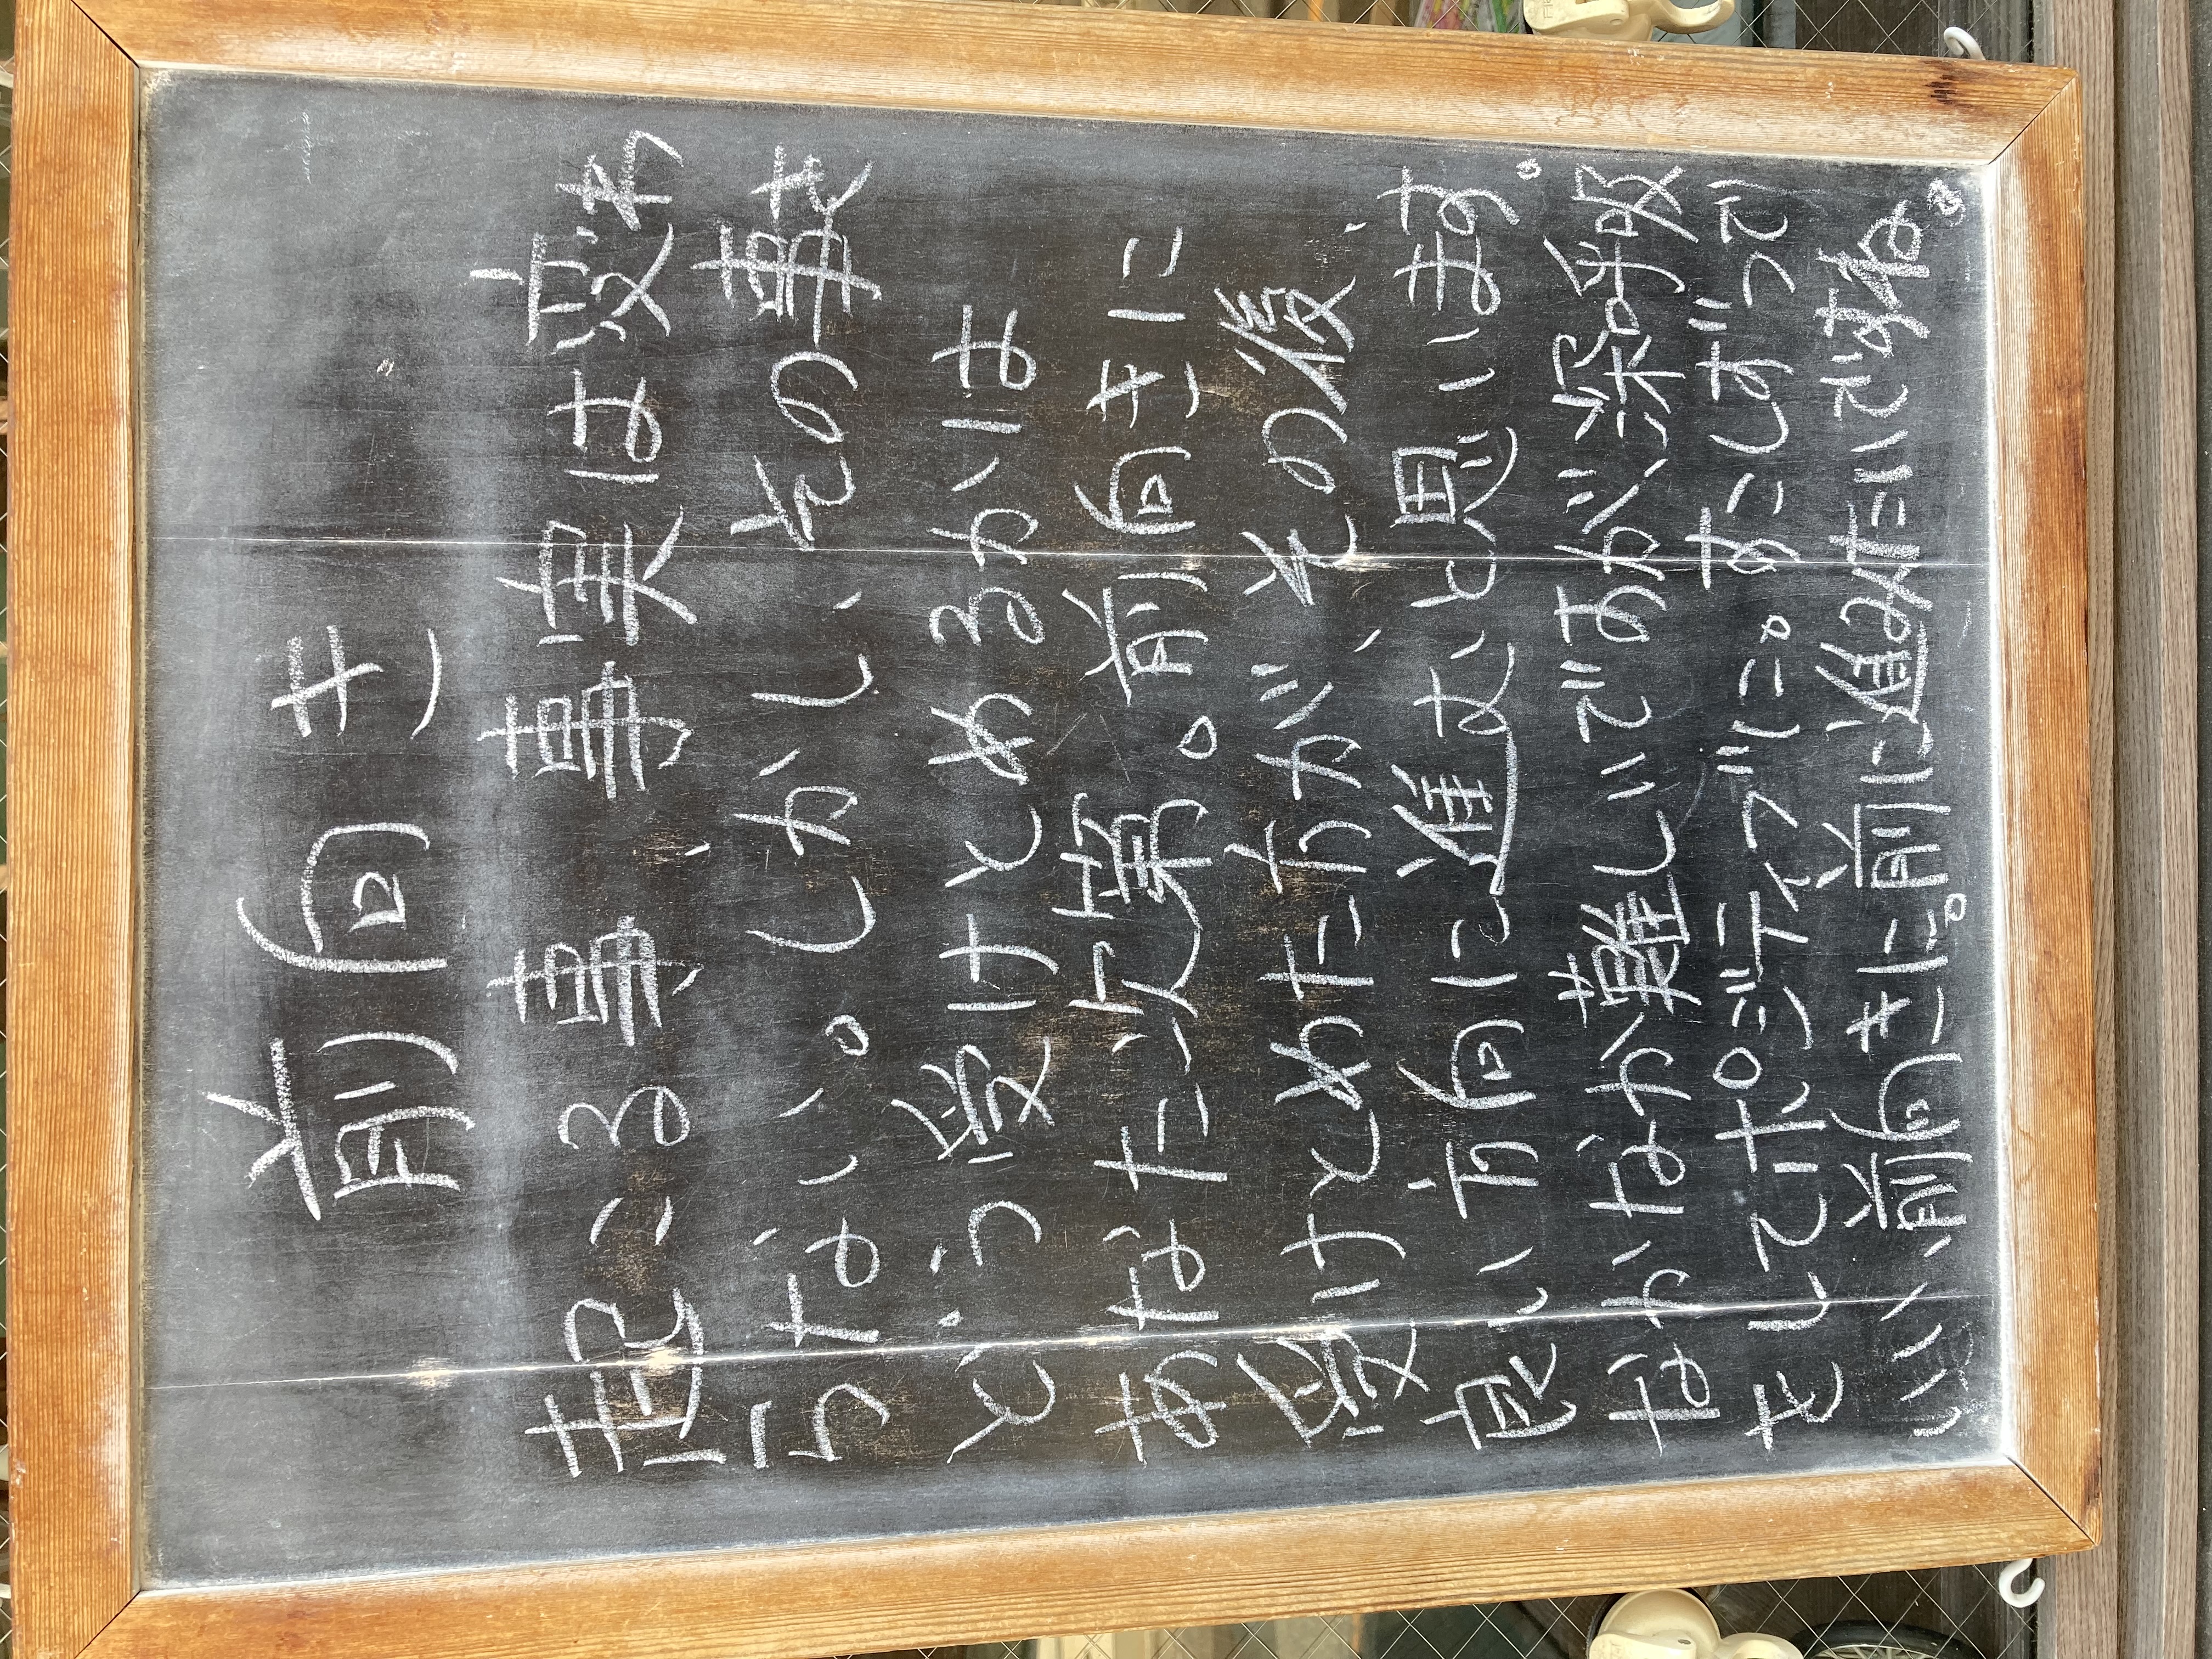 前向き
起こる事、事実は変わ
らない。しかし、その事を
どう受けとめるかは
あなた次第。前向きに
受けとめた方が、その後、
良い方向に進むと思います。
なかなか難しいですが、深呼吸
をしてポジティブに。すこしずつで
いい、前向きに。前に進みたいですね。